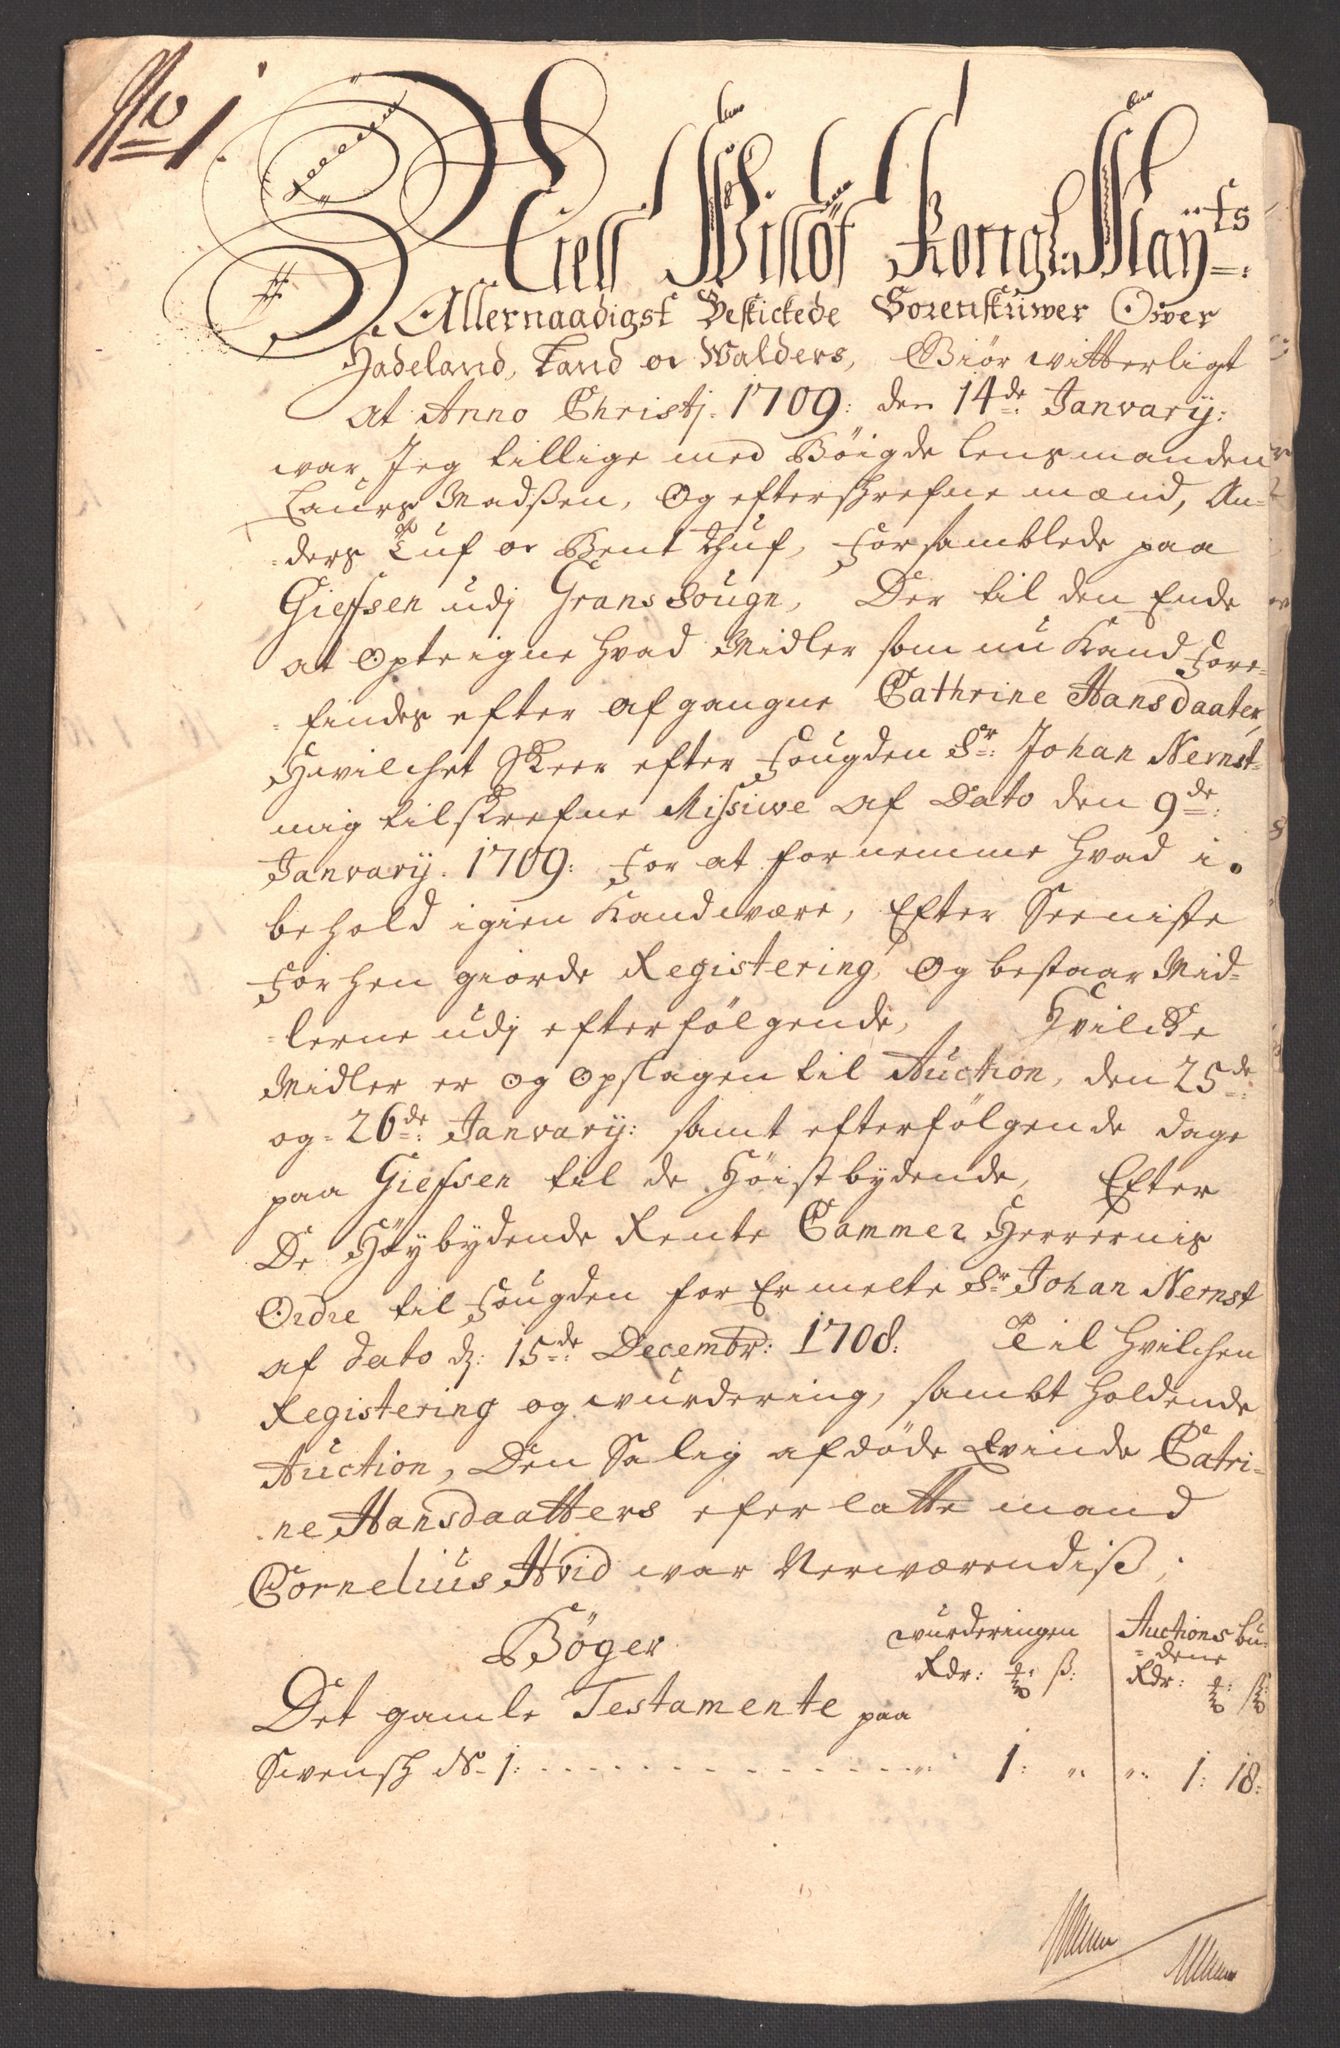 No 1
Niels Wislöf Kongl: Mayts
Allernaadigst Beskickede Sorenskriwer Ower
Hadeland, Land oc Walders, Giör witterligt
At Anno Christj. 1709: den 14de Janvarij:
war Jeg tillige med Böigde Lensmanden
Laurs Madßen, Og efterschrefne mænd, An-
ders Tuf oc Bent Thuf, forsamblede paa
Gießen udj Grans Sougn, Der til den Ende
at Opteigne hvad Midler som nu Kand fore-
findes efter afgangne Cathrine Hansdaater,
Hwilchet Skeer efter fougden Sr: Johan Nernst
mig tilskrefne Missiwe af Dato den 9de
Janvarij. 1709: for at fornemme hvad i
behold igien Kand være, Efter Seeniste
forhen giorde Registering, Og bestaar Mid-
lerne udj efterfölgende, Hvilcke
Midler er og Opslagen til Auction, den 25de
og 26de: Janvarij: samt efterfölgende dage
paa Gießen til de Höistbydende, Efter
De Höybydende Rente Cammer Herrernis
Ordre til fougden for Ermelte Sr: Johan Nernst
af dato d: 15de: Decembr: 1708: Til hvilchen
Registering og wurdering, sambt holdende
Auction, Den Salig afdöde Qvinde Catri-
ne Hansdaatters efer latte mand
Cornelius Hvid war Nerwærendiß;
Böger
wurderingen
Auctions bu-
dene
Rdr: ß:
Rdr: ß
Det gamle Testamente paa
Swensch N 1: 1: 1: 18: